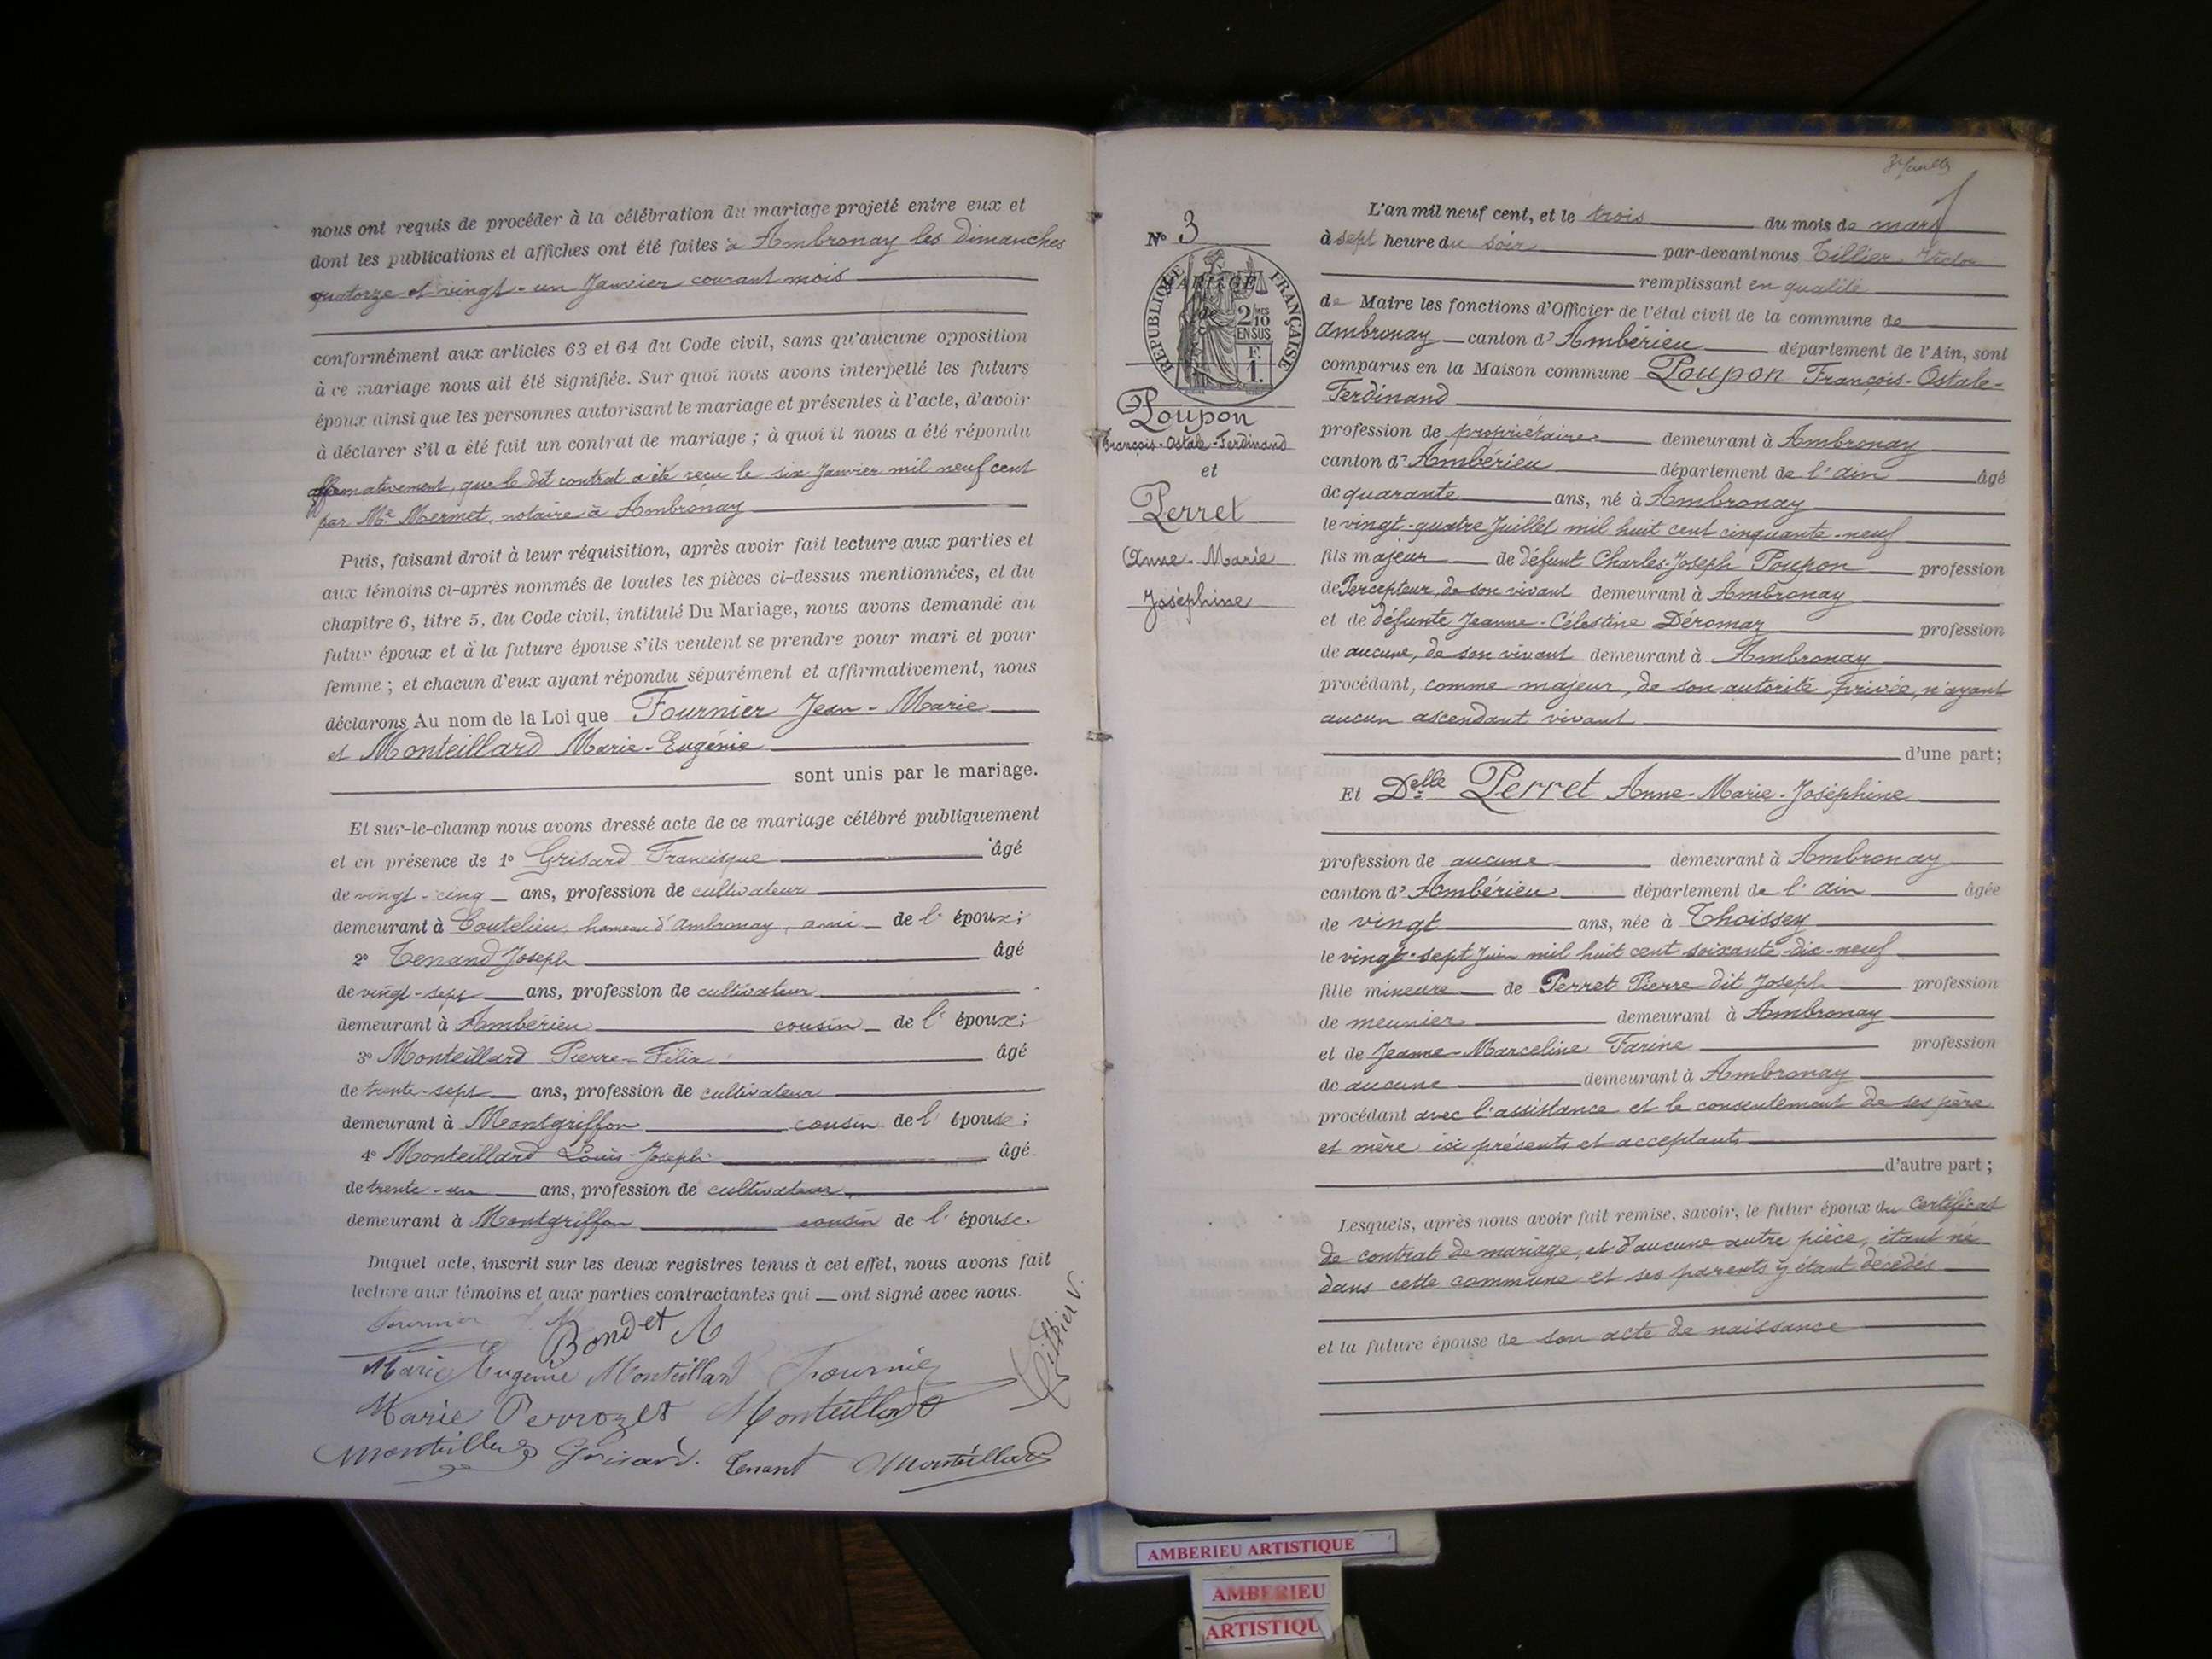 nous ont requis de procéder à la célébration du mariage projeté entre eux et
dont les publications et affiches ont été faites à Ambronay les Dimanches
quatorze et vingt-un Janvier courant mois
conformément aux articles 63 et 64 du Code civil, sans qu'aucune opposition
à ce mariage nous ait été signifiée. Sur quoi nous avons interpellé les futurs
époux ainsi que les personnes autorisant le mariage et présentes à l'acte, d'avoir
à déclarer s'il a été fait un contrat de mariage ; à quoi il nous a été répondu
affirmativement, que le dit contrat a été reçu le six Janvier mil neuf cent
par Me Mermet, notaire à Ambronay
Puis, faisant droit à leur réquisition, après avoir fait lecture aux parties et
aux témoins ci-après nommés de toutes les pièces ci-dessus mentionnées, et du
chapitre 6, titre 5, du Code civil, intitulé Du Mariage, nous avons demandé au
futur époux et à la future épouse s'ils veulent se prendre pour mari et pour
femme ; et chacun d'eux ayant répondu séparément et affirmativement, nous
déclarons Au nom de la Loi que Fournier Jean-Marie
et Monteillard Marie-Eugénie
sont unis par le mariage.
Et sur-le-champ nous avons dressé acte de ce mariage célébré publiquement
et en présence de 1° Grisard Francisque âgé
de vingt-cinq ans, profession de cultivateur
demeurant à Coutelieu, hameau d'Ambronay, ami de l' époux;
2° Tenand Joseph âgé
de vingt-sept ans, profession de cultivateur
demeurant à Ambérieu cousin de l' époux;
3° Monteillard Pierre-Félix âgé
de trente-sept ans, profession de cultivateur
demeurant à Montgriffon cousin de l' épouse;
4° Monteillard Louis-Joseph âgé
de trente-un ans, profession de cultivateur
demeurant à Montgriffon cousin de l' épouse.
Duquel acte, inscrit sur les deux registres tenus à cet effet, nous avons fait
lecture aux témoins et aux parties contractantes qui ont signé avec nous.
Fournier J. M
Bondet M
Marie Eugénie Monteillard Fournier
Marie Perrozet Monteillard
Monteillard Grisard. Tenant Monteillard
Tillier V.
N° 3
RÉPUBLIQUE FRANÇAISE
MARIAGE
de
2/10 MES
EN SUS
F.
1
Poupon
François-Ostale-Ferdinand
et
Perret
Anne-Marie
Joséphine
L'an mil neuf cent, et le trois du mois de mars
à sept heure du soir par-devant nous Tillier Victor
remplissant en qualité
de Maire les fonctions d'Officier de l'état civil de la commune de
Ambronay canton d' Ambérieu département de l'Ain, sont
comparus en la Maison commune Poupon François-Ostale-
Ferdinand
profession de propriétaire demeurant à Ambronay
canton d' Ambérieu département de l'ain âgé
de quarante ans, né à Ambronay
le vingt-quatre Juillet mil huit cent cinquante-neuf
fils majeur de défunt Charles-Joseph Poupon profession
de Percepteur, de son vivant demeurant à Ambronay
et de défunte Jeanne-Célestine Déromaz profession
de aucune, de son vivant demeurant à Ambronay
procédant, comme majeur, de son autorité privée, n'ayant
aucun ascendant vivant
d'une part;
Et Delle Perret Anne-Marie-Joséphine
profession de aucune demeurant à Ambronay
canton d' Ambérieu département de l'ain âgée
de vingt ans, née à Thoissey
le vingt-sept Juin mil huit cent soixante-dix-neuf
fille mineure de Perret Pierre dit Joseph profession
de meunier demeurant à Ambronay
et de Jeanne-Marceline Farine profession
de aucune demeurant à Ambronay
procédant avec l'assistance et le consentement de ses père
et mère ici présents et acceptants
d'autre part;
Lesquels, après nous avoir fait remise, savoir, le futur époux du certificat
de contrat de mariage, et d'aucune autre pièce, étant né
dans cette commune et ses parents y étant décédés
et la future épouse de son acte de naissance
AMBERIEU ARTISTIQUE
AMBERIEU
ARTISTIQU